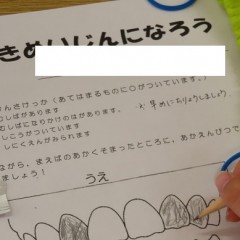 きめいじんになろう
けんさけっか（あてはまるものに○がついています。）
むしばがあります
むしばになりかけのはがあります。
しこうがついています
しにくえんがみられます
お早めにちりょうしましょう。
ながら、まえばのあかくそまったところに、あかえんぴつで
ましょう！
うえ